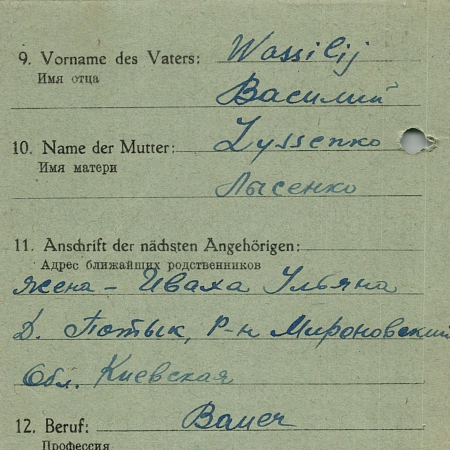 9. Vorname des Vaters: Wassilij
Имя отца Василий
10. Name der Mutter: Lyssenko
Имя матери Лысенко
11. Anschrift der nächsten Angehörigen:
Адрес ближайших родственников
жена - Иваха Ульяна
Д. Потык, Р-н Мироновский
Обл. Киевская
12. Beruf: Bauer
Профессия